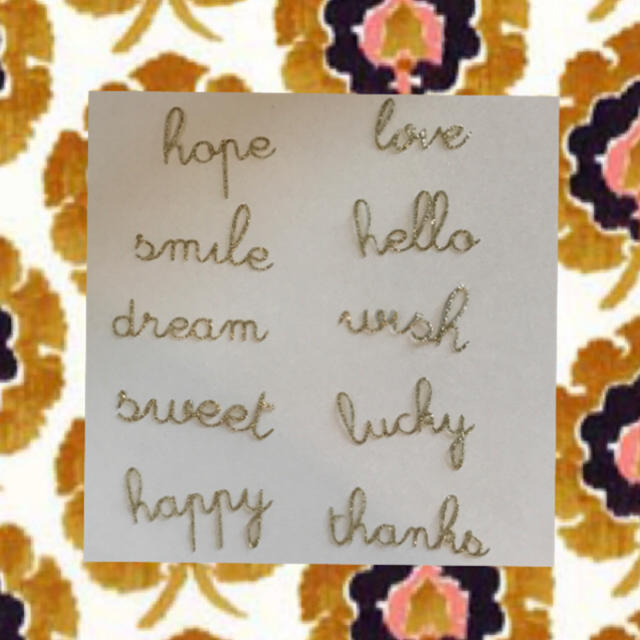 hope love
smile hello
dream wish
sweet lucky
happy thanks